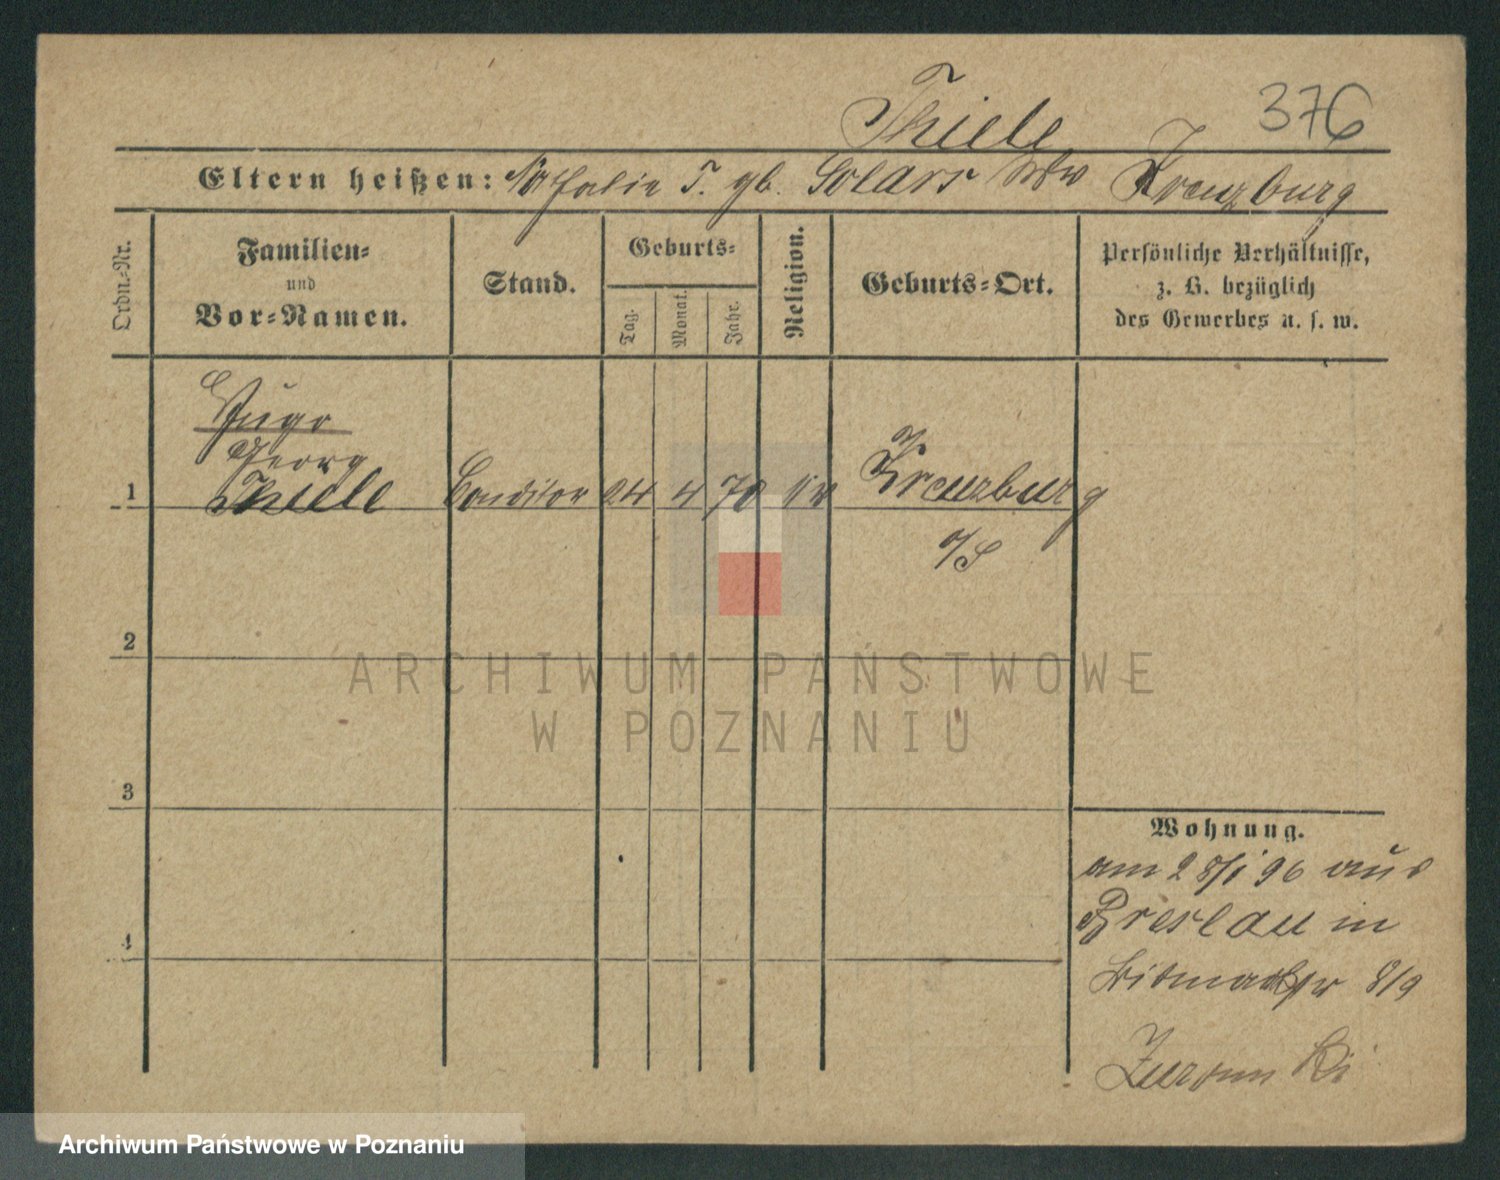 376
Thiele
Eltern heißen: Nathalie T. gb. Solars Ww Kreuzburg
Ordn.-Nr.
Familien-
und
Vor-Namen.
Stand.
Geburts-
Tag.
Monat.
Jahr.
Religion.
Geburts-Ort.
Persönliche Verhältnisse,
z. B. bezüglich
des Gewerbes u. s. w.
Hugo
Georg
1 Thiele Conditor 24 4 70 Kreuzburg
o/S
2
3
4
Wohnung.
am 28/1 96 aus
Breslau in
8/9
ARCHIWUM PAŃSTWOWE
W POZNANIU
Archiwum Państwowe w Poznaniu